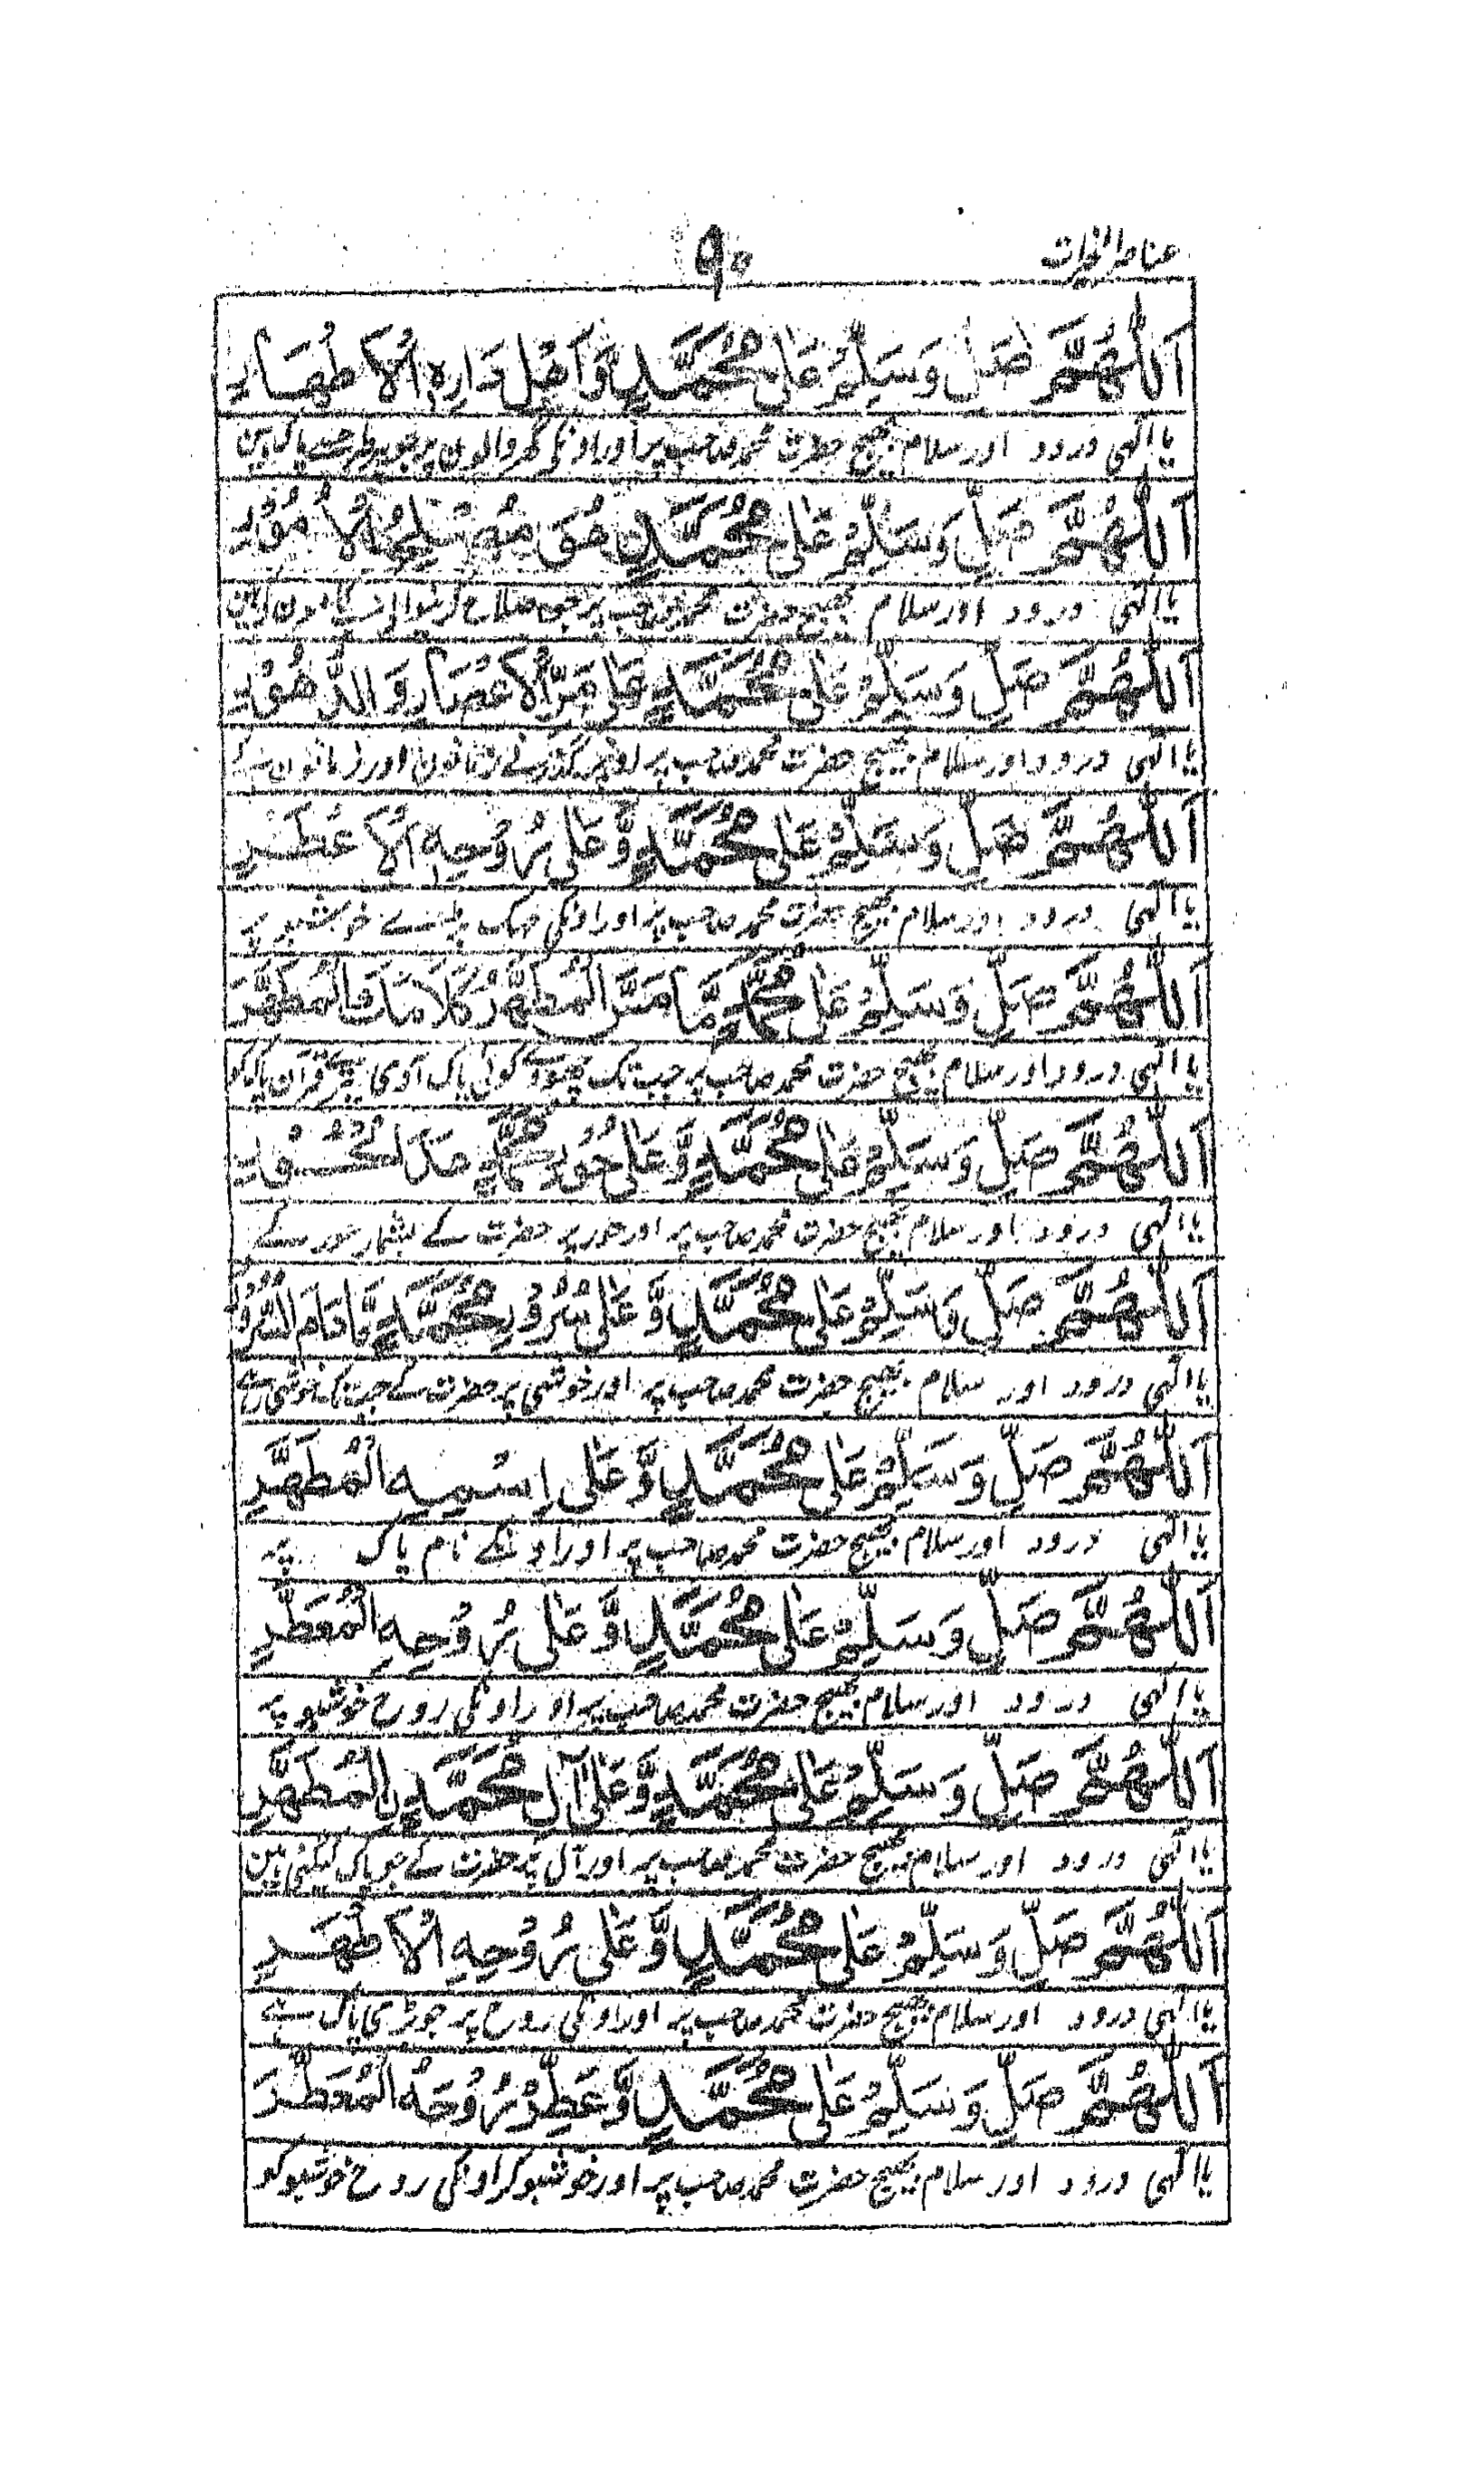 عناصر الخیرات
۹۰
اَللّٰهُمَّ صَلِّ وَسَلِّمْ عَلٰی مُحَمَّدٍ وَّاَهْلِ دَارِهِ الْاَطْهَارِ
یا الٰہی درود اور سلام بھیج حضرت محمد صاحب پر اور اونکی گھر والون پر جو ہر طرح سے پاک ہین
اَللّٰهُمَّ صَلِّ وَسَلِّمْ عَلٰی مُحَمَّدٍ هُوَ مُصْلِحُ الْاُمُوْرِ
یا الٰہی درود اور سلام بھیج حضرت محمد صاحب پر جو صلاح کرنوالے کامون کے ہین
اَللّٰهُمَّ صَلِّ وَسَلِّمْ عَلٰی مُحَمَّدٍ عَلٰی مَرِّ الْاَعْصَارِ وَالدُّهُوْرِ
یا الٰہی درود اور سلام بھیج حضرت محمد صاحب پر اوپر گذرنے زمانون اور زمانون کے
اَللّٰهُمَّ صَلِّ وَسَلِّمْ عَلٰی مُحَمَّدٍ وَّعَلٰی رُوْحِهِ الْاَعْطَرِ
یا الٰہی درود اور سلام بھیج حضرت محمد صاحب پر اور اونکی مہک بڑے خوشبو پر
اَللّٰهُمَّ صَلِّ وَسَلِّمْ عَلٰی مُحَمَّدٍ مَّا مَسَّ الْمُطَهَّرُ كَلَامَكَ الْمُطَهَّرَ
یا الٰہی درود اور سلام بھیج حضرت محمد صاحب پر جب تک چھووے کوئی پاک آدمی تیرے قرآن پاک کو
اَللّٰهُمَّ صَلِّ وَسَلِّمْ عَلٰی مُحَمَّدٍ وَّعَلٰی حُوْرِ مُحَمَّدٍ
یا الٰہی درود اور سلام بھیج حضرت محمد صاحب پر اور حور پر حضرت کے بشمار حور کے
اَللّٰهُمَّ صَلِّ وَسَلِّمْ عَلٰی مُحَمَّدٍ وَّعَلٰی سُرُوْرِ مُحَمَّدٍ مَّا دَامَ السُّرُوْرُ
یا الٰہی درود اور سلام بھیج حضرت محمد صاحب پر اور خوشی پر حضرت کے جب تک خوشی رہے
اَللّٰهُمَّ صَلِّ وَسَلِّمْ عَلٰی مُحَمَّدٍ وَّعَلٰی اِسْمِهِ الْمُطَهَّرِ
یا الٰہی درود اور سلام بھیج حضرت محمد صاحب پر اور اونکے نام پاک پر
اَللّٰهُمَّ صَلِّ وَسَلِّمْ عَلٰی مُحَمَّدٍ وَّعَلٰی رُوْحِهِ الْمُعَطَّرِ
یا الٰہی درود اور سلام بھیج حضرت محمد صاحب پر اور اونکی روح خوشبو پر
اَللّٰهُمَّ صَلِّ وَسَلِّمْ عَلٰی مُحَمَّدٍ وَّعَلٰی اٰلِ مُحَمَّدِنِ الْمُطَهَّرِ
یا الٰہی درود اور سلام بھیج حضرت محمد صاحب پر اور آل پر حضرت کے جو پاک کیگئی ہین
اَللّٰهُمَّ صَلِّ وَسَلِّمْ عَلٰی مُحَمَّدٍ وَّعَلٰی رُوْحِهِ الْاَطْهَرِ
یا الٰہی درود اور سلام بھیج حضرت محمد صاحب پر اور اونکی روح پر جو بڑی پاک ہے
اَللّٰهُمَّ صَلِّ وَسَلِّمْ عَلٰی مُحَمَّدٍ وَّعَطِّرْ رُوْحَهُ الْمُعَطَّرَ
یا الٰہی درود اور سلام بھیج حضرت محمد صاحب پر اور خوشبو کر اونکی روح خوشبو کو